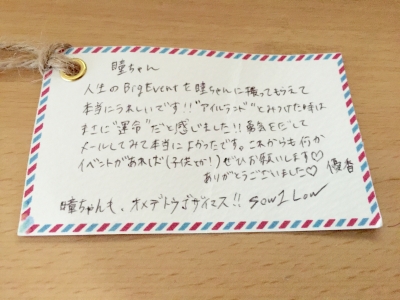 瞳ちゃん
人生のBig Eventを瞳ちゃんに撮ってもらえて
本当にうれしいです!!"アイルランド"とみつけた時は
まさに"運命"だと感じました!!勇気をだして
メールしてみて本当によかったです。これからも何か
イベントがあれば(子供とか!)ぜひお願いします♡
ありがとうございました♡
優香
瞳ちゃんも、オメデトウゴザイマス!!